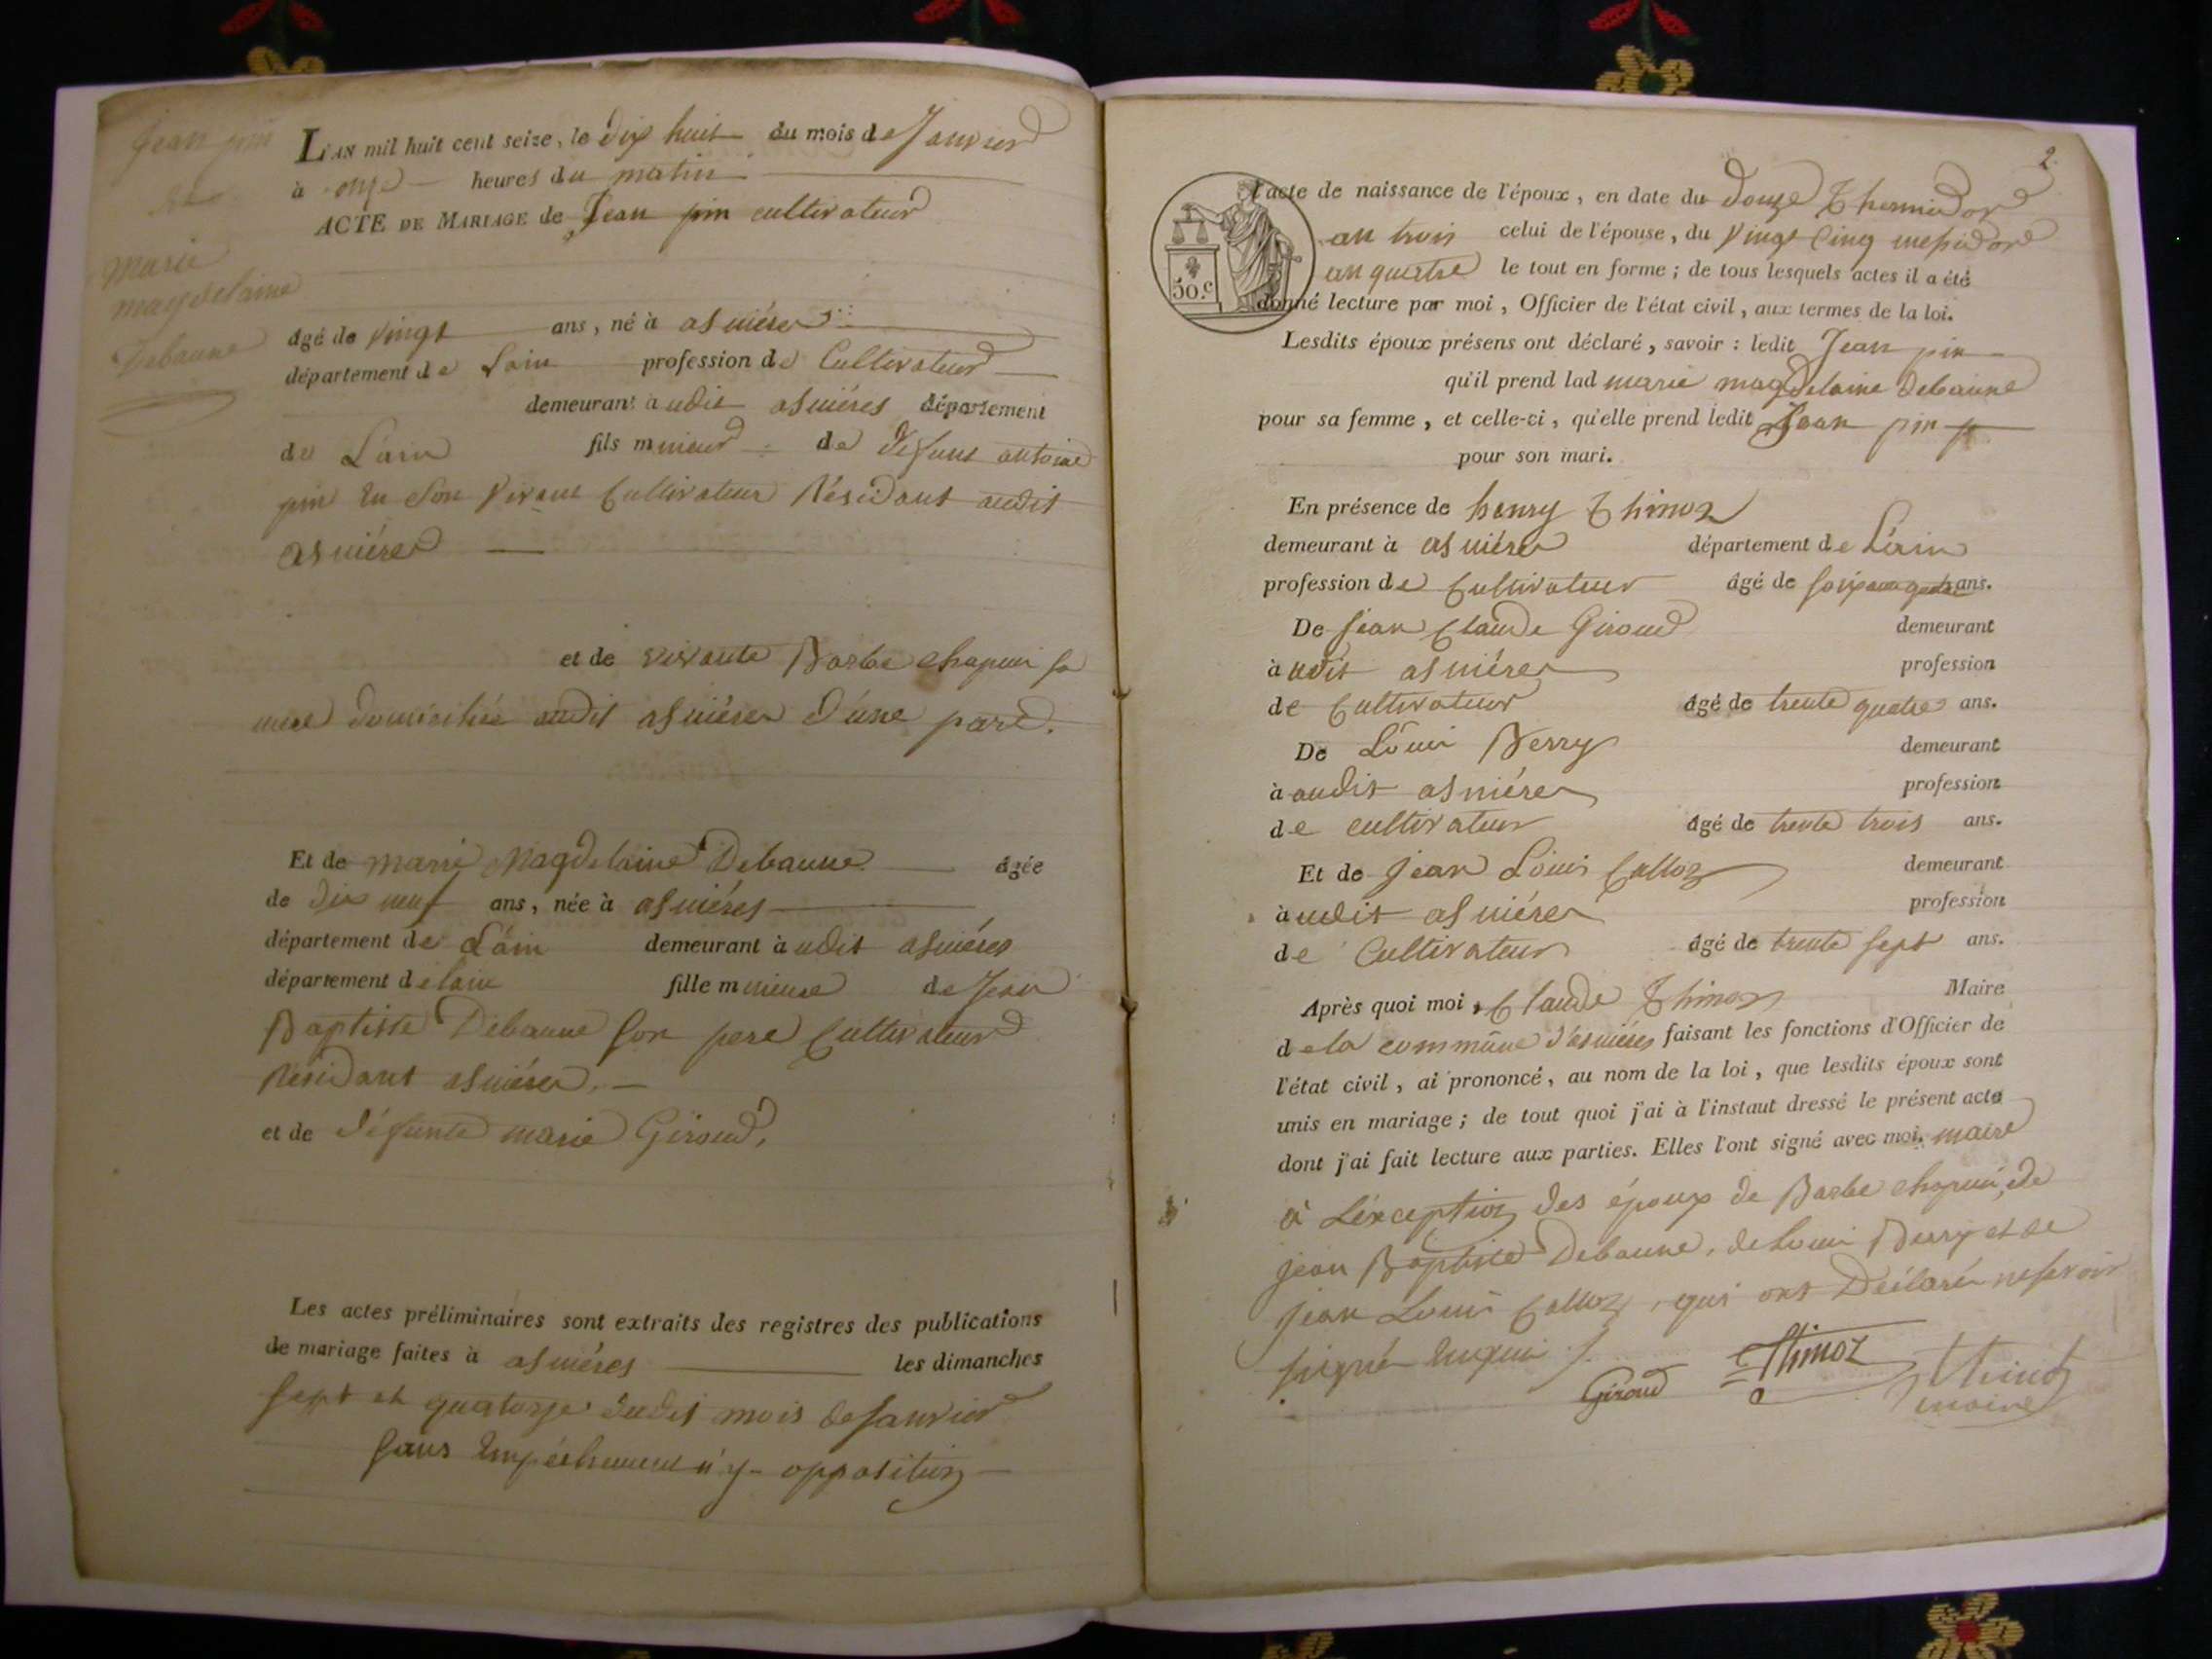 Jean pin
Marie
magdelaine
Debaune
L'AN mil huit cent seize, le dix huit du mois de Janvier
à onze heures du matin
ACTE DE MARIAGE de Jean pin cultivateur
âgé de vingt ans, né à asniéres
département de Lain profession de Cultivateur
demeurant audit asniéres département
de L'ain fils mineur de defunt antoine
pin en son vivant Cultivateur Résidant audit
asniéres
et de vivante Barbe chapui sa
mere domiciliée audit asniéres d'une part.
Et de marie Magdelaine Debaune âgée
de dix neuf ans, née à asniéres
département de Lain demeurant à udit asniéres
département de lain fille mineure de Jean
Baptiste Debaune son pere Cultivateur
Résidant asniéres.
et de défunte marie Giroud,
Les actes préliminaires sont extraits des registres des publications
de mariage faites à asniéres les dimanches
sept et quatorze dudit mois de Janvier
sans Empéchement n'y opposition
2.
l'acte de naissance de l'époux, en date du douze Thermidor
an trois celui de l'épouse, du vingt Cinq messidor
an quatre le tout en forme ; de tous lesquels actes il a été
50.c
donné lecture par moi, Officier de l'état civil, aux termes de la loi.
Lesdits époux présens ont déclaré, savoir : ledit Jean pin
qu'il prend lad marie magdelaine Debaune
pour sa femme, et celle-ci, qu'elle prend ledit Jean pin
pour son mari.
En présence de henry Thimoz
demeurant à asniéres département de L'ain
profession de Cultivateur âgé de soixante quatre ans.
De Jean Claude Giroud demeurant
à udit asniéres profession
de Cultivateur âgé de trente quatre ans.
De Loui Berry demeurant
à audit asniéres profession
de cultivateur âgé de trente trois ans.
Et de Jean Louis Calloz demeurant
à udit asniéres profession
de Cultivateur âgé de trente sept ans.
Après quoi moi, Claude Thimoz Maire
de la commune d'asniéres faisant les fonctions d'Officier de
l'état civil, ai prononcé, au nom de la loi, que lesdits époux sont
unis en mariage ; de tout quoi j'ai à l'instant dressé le présent acte
dont j'ai fait lecture aux parties. Elles l'ont signé avec moi, maire
à L'éxception des époux de Barbe chapui, de
jean Baptiste Debaune, de Loui Berry et de
jean Louis Calloz, qui ont Déclaré ne savoir
signé Enquis
Giroud Thimoz Thimoz
maire